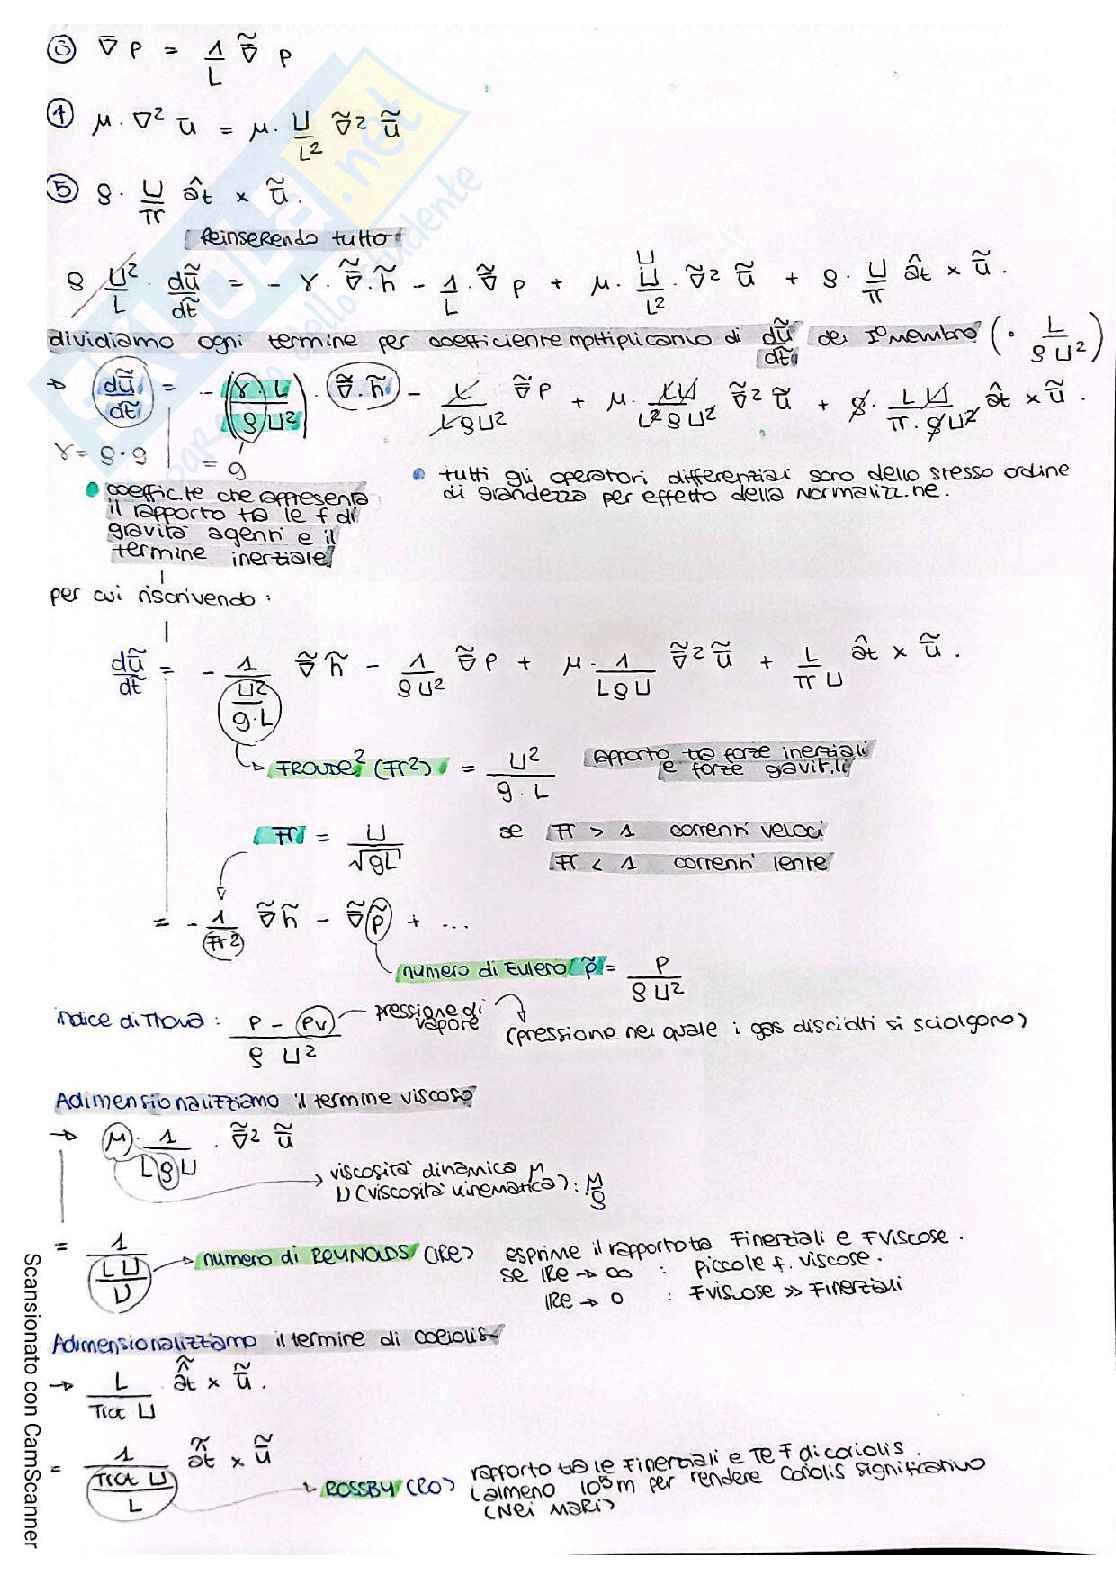 ③ ∇̄ P = 1/L ∇̃ P
④ μ · ∇² ū = μ · U/L² ∇̃² ũ
⑤ ρ · U/π ∂̂t × ũ.
Reinserendo tutto
ρ U²/L · dũ/dt̃ = - γ · ∇̃ · h̃ - 1/L · ∇̃ P + μ · U/L² · ∇̃² ũ + ρ · U/π ∂̂t × ũ.
dividiamo ogni termine per coefficiente moltiplicativo di dũ/dt̃ del I° membro ( · L/ρU² )
→ dũ/dt̃ = - (γ · L/ρU²) · ∇̃ · h̃ - L/LρU² ∇̃ P + μ · LU/L²ρU² ∇̃² ũ + ρ · LU/π · ρU² ∂̂t × ũ.
γ = ρ · g
= g
coeffic.te che rappresenta il rapporto tra le f di gravità agenti e il termine inerziale
tutti gli operatori differenziali sono dello stesso ordine di grandezza per effetto della normalizz.ne.
per cui riscrivendo:
dũ/dt̃ = - 1/(U²/g·L) ∇̃ h̃ - 1/ρU² ∇̃ P + μ · 1/LρU ∇̃² ũ + L/πU ∂̂t × ũ.
FROUDE² (Fr²) = U²/g·L rapporto tra forze inerziali e forze gravit.li
Fr = U/√gL
se Fr > 1 correnti veloci
Fr < 1 correnti lente
= - 1/Fr² ∇̃ h̃ - ∇̃ p̃ + ...
numero di Eulero p̃ = P/ρU²
indice di Thoma: P - Pv/ρ U² pressione di vapore (pressione nel quale i gas disciolti si sciolgono)
Adimensionalizziamo il termine viscoso
→ μ · 1/LρU · ∇̃² ũ
viscosità dinamica μ
ν (viscosità cinematica): μ/ρ
= 1/(LU/ν) numero di REYNOLDS (Re) esprime il rapporto tra Finerziali e Fviscose.
se Re → ∞ : piccole f. viscose.
Re → 0 : Fviscose >> Finerziali
Adimensionalizziamo il termine di coriolis
→ L/πrot U · ∂̂t × ũ.
= 1/(πrot U/L) ∂̂t × ũ
ROSSBY (RO) rapporto tra le Finerziali e le F di coriolis.
(almeno 10³m per rendere coriolis significativo
(NEI MARI)
Scansionato con CamScanner